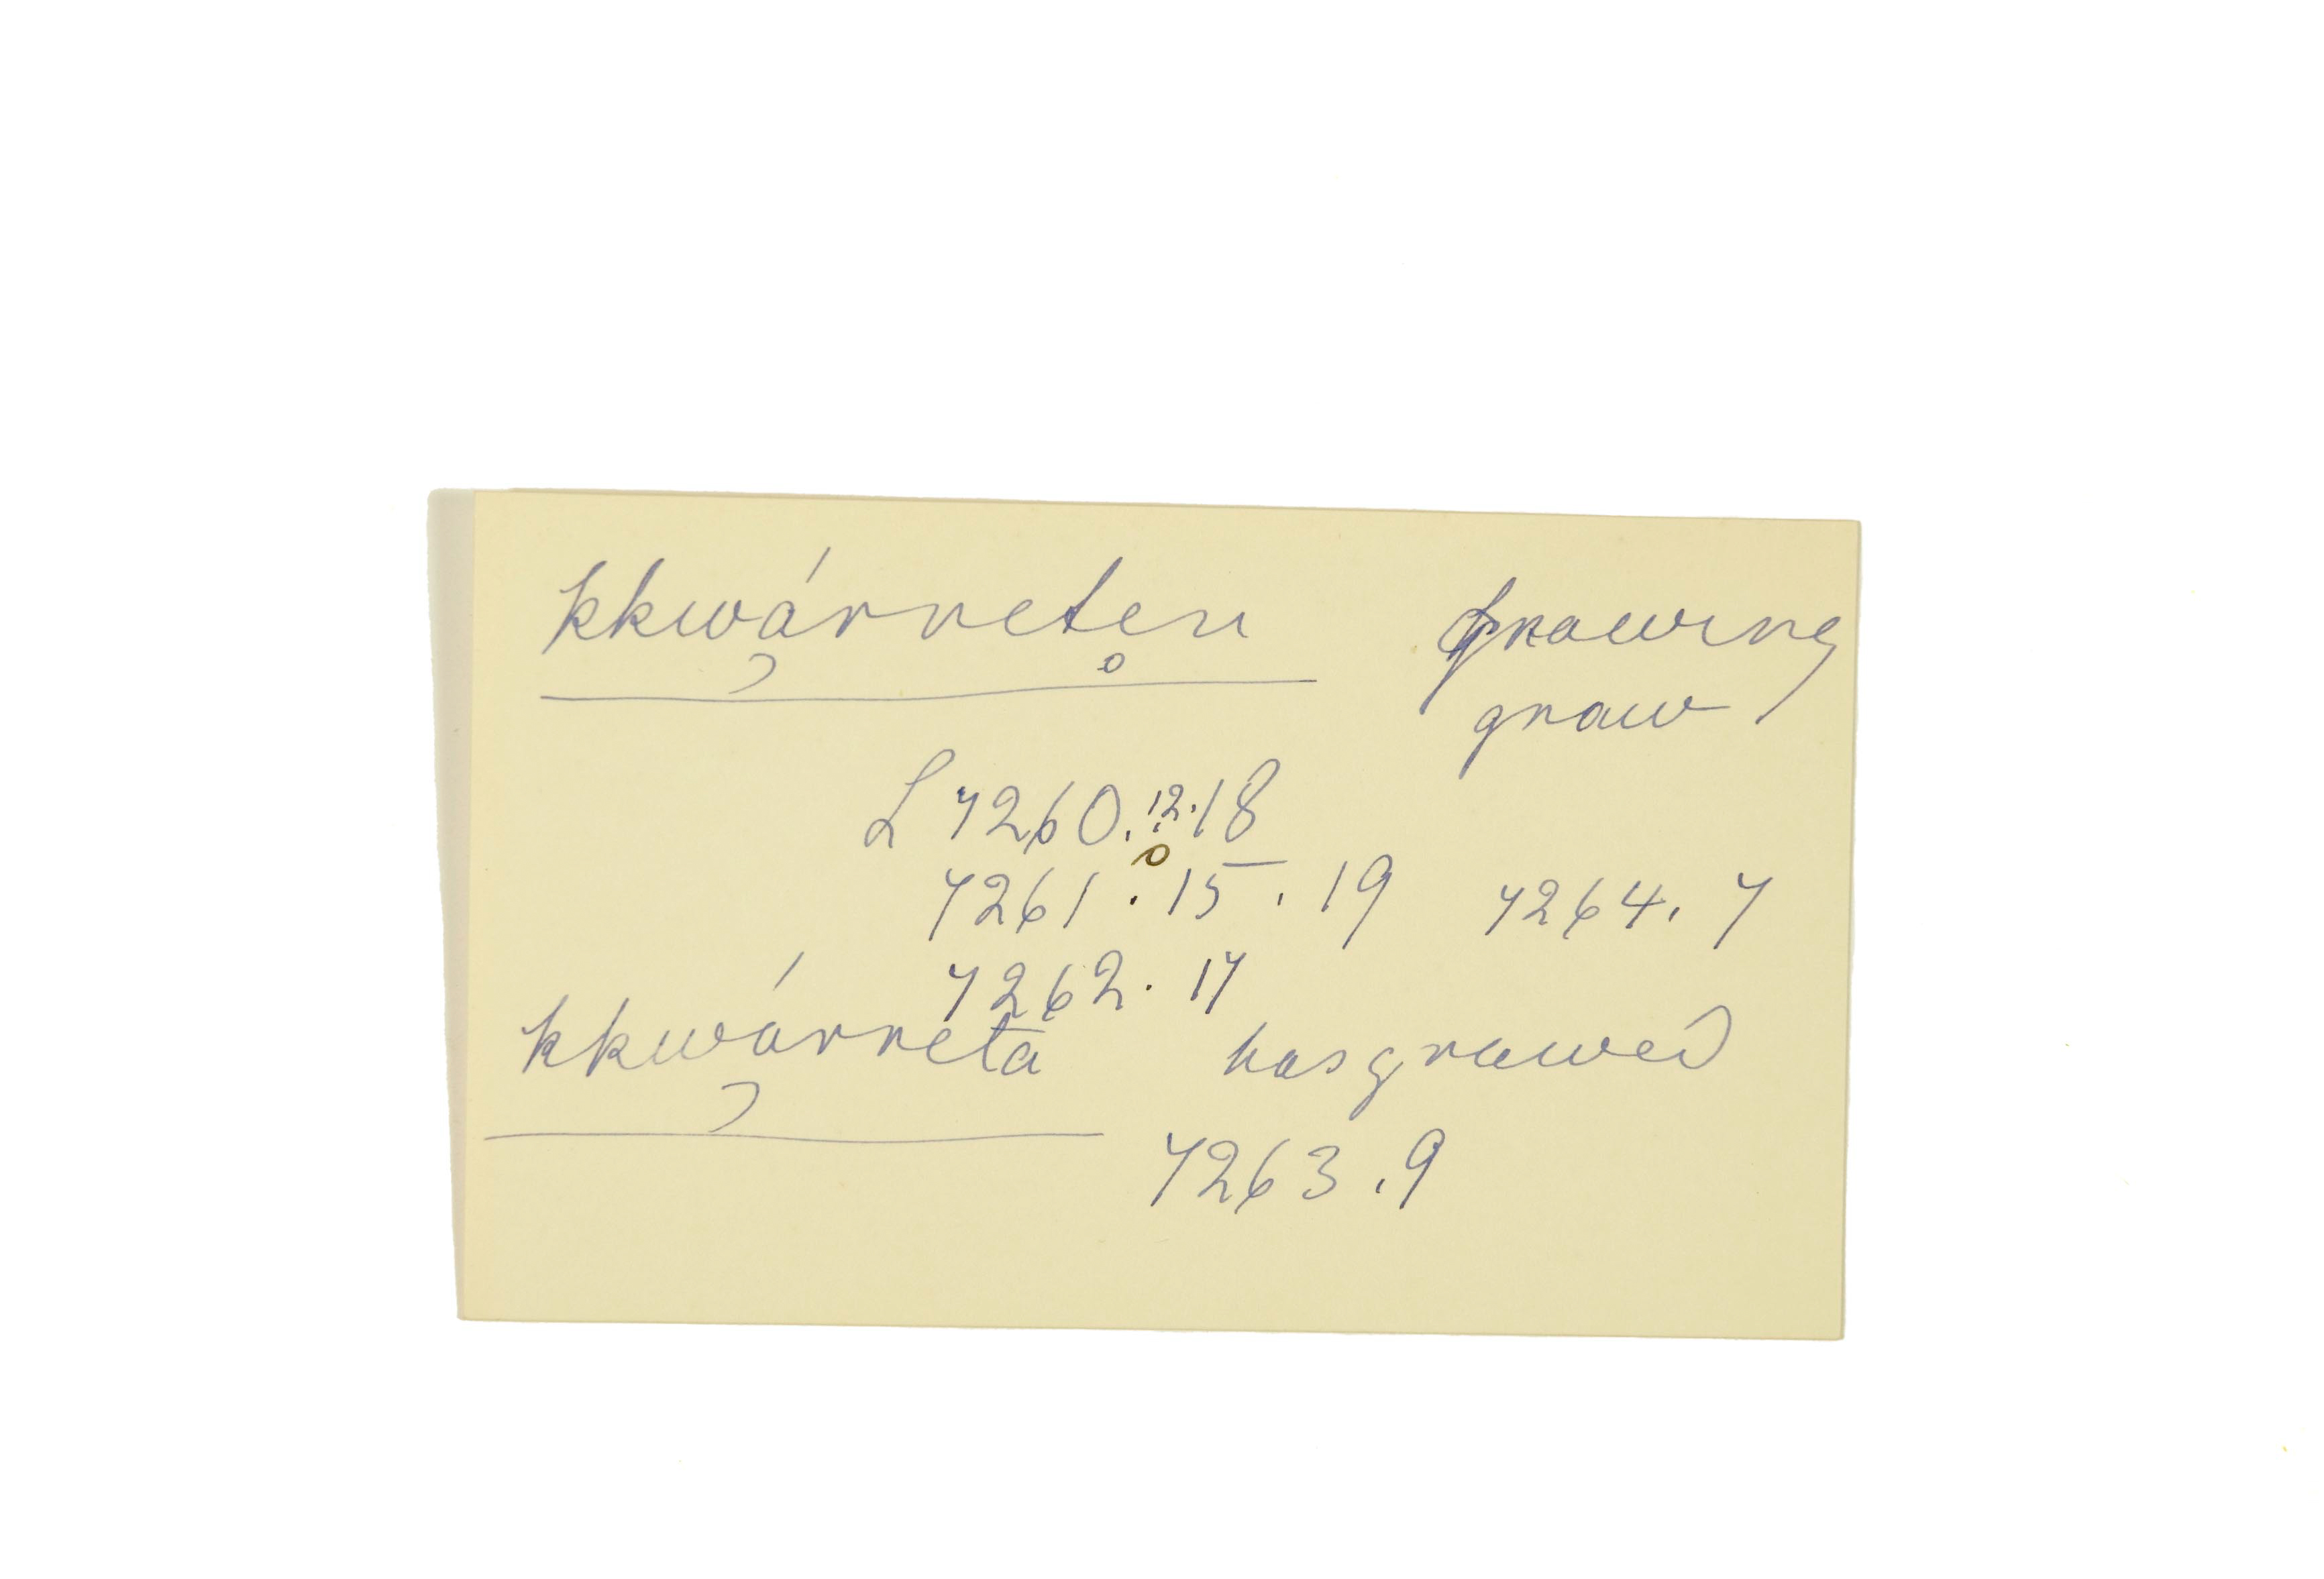 kkwárreten gnawing
gnaw
L 7260.12.18
7261.15.19 7264.7
7262.17
kkwárreta has gnawed
7263.9